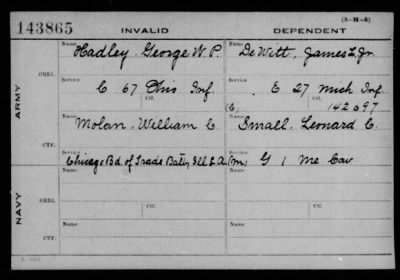 (3-H-3)
143865 INVALID DEPENDENT
Name Name
Hadley, George W. P. De Witt, James L. Jr.
ORIG.
Service Ctf. Service Ctf.
C 67 Ohio Inf. E 27 Mich Inf
(C) 142097
ARMY
Name Name
Molan, William C. Small, Leonard C.
CTF.
Service Service
Chicago Bd. of Trade Batty, Ill L. A. (M) G 1 Me Cav
Name Name
ORIG.
Ctf. Ctf.
NAVY
Name Name
CTF.